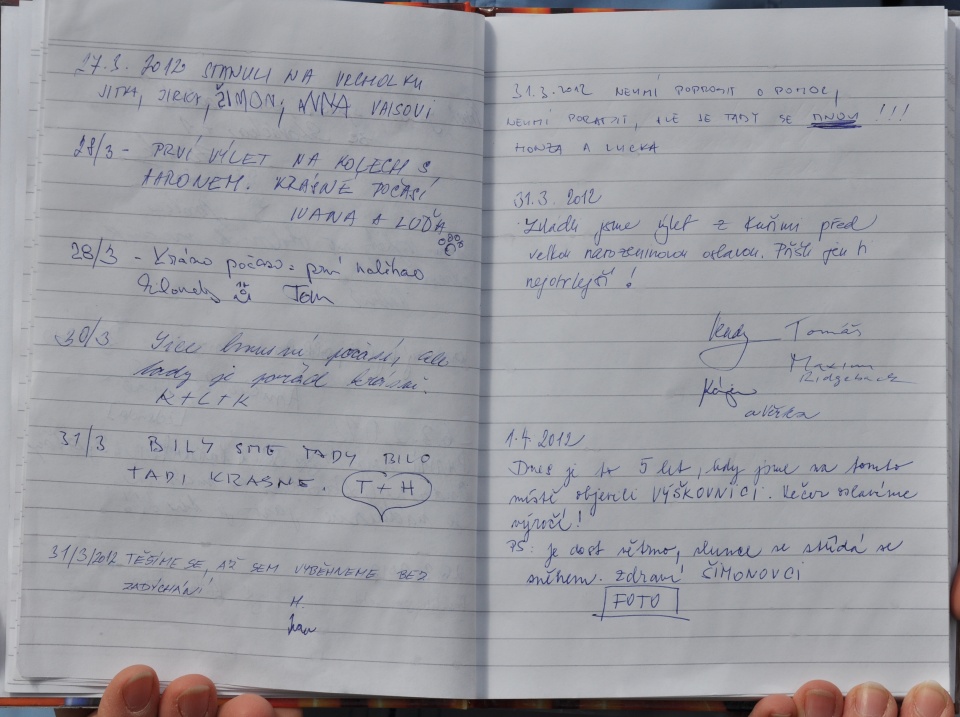 27.3. 2012 STANULI NA VRCHOLKU
JITKA, JIRKA, ŠIMON, ANNA VAISOVI
28/3 - PRVNÍ VÝLET NA KOLECH S
AARONEM. KRÁSNÉ POČASÍ
IVANA A LUĎA
28/3 - počaso = první
Tom
30/3 Sice hnusné počasí, ale
tady je pořád krásně.
K + L + K
31/3 BILY SME TADY BILO
TADI KRASNE. T + H
31/3/2012 TĚŠÍME SE, AŽ SEM VYBĚHNEME BEZ
ZADÝCHÁNÍ
H.
31.3.2012 NEUMÍ POPROSIT O POMOC,
NEUMÍ PORADIT, ALE JE TADY SE MNOU !!!
HONZA A LUCKA
31.3. 2012
Zvládli jsme výlet z Kuřimi před
velkou narozeninovou oslavou. Přišli jen ti
nejotrlejší!
Tomáš
Maxim
Ridgeback
a Věrka
1.4. 2012
Dnes je to 5 let, kdy jsme na tomto
místě objevili VÝŠKOVNICI. Večer oslavíme
výročí!
PS: je dost větrno, slunce se střídá se
sněhem. Zdraví ŠIMONOVCI
FOTO